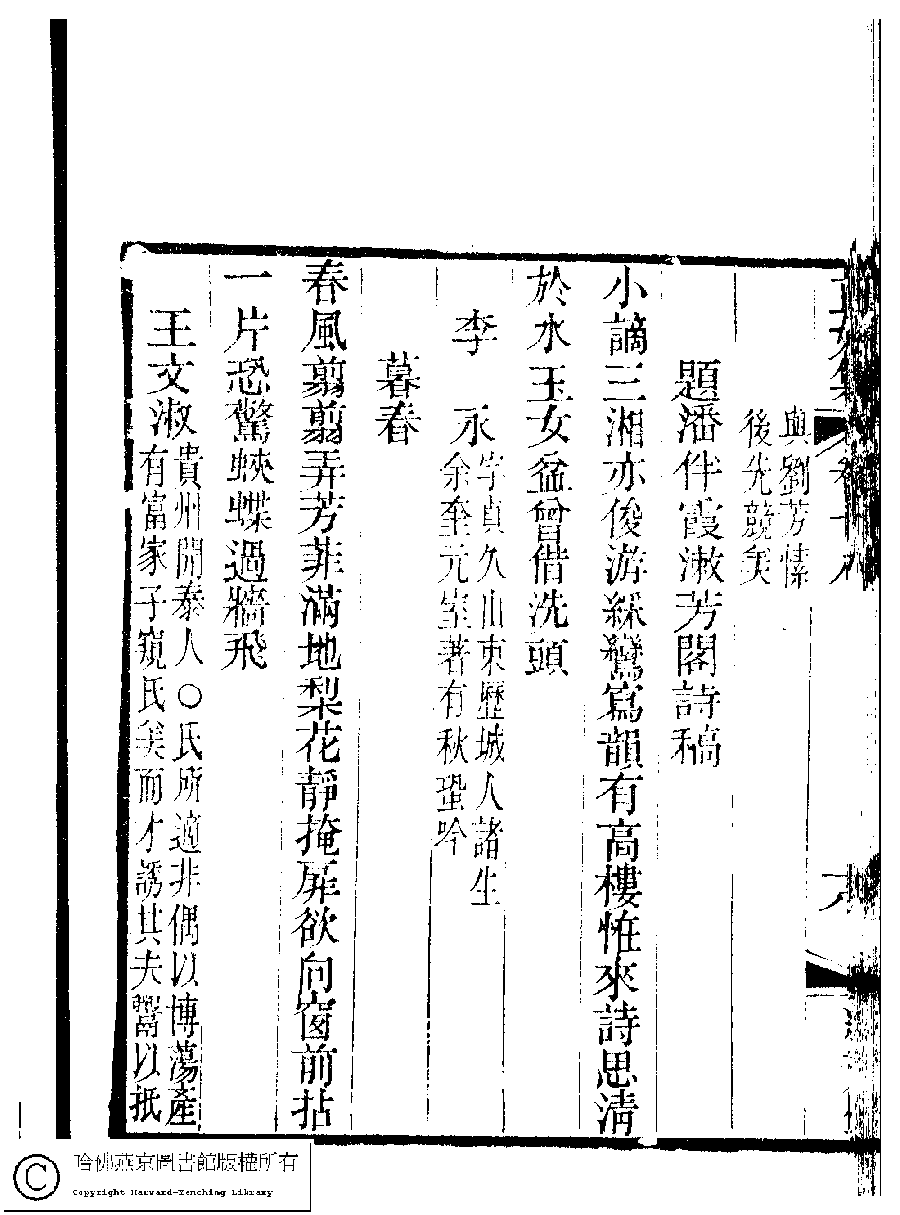 與劉芳愫
後先競矣
題潘伴霞漱芳閣詩稿
小謫三湘亦俊游綵鸞寫韻有高樓惟來詩思清
於水玉女盆曾借洗頭
李 永
字貞久山東歷城人諸生
余奎元室著有秋蛩吟
暮春
春風翦翦弄芳菲滿地梨花靜掩扉欲向窗前拈
一片恐驚蛺蝶過牆飛
王文淑
貴州開泰人○氏所適非偶以博蕩產
有富家子窺氏美而才誘其夫鬻以抵
哈佛燕京圖書館版權所有
Copyright Harvard-Yenching Library